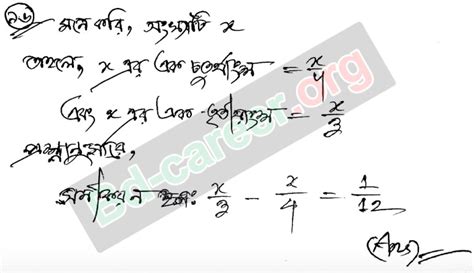 ১৬ মনে করি, সংখ্যাটি x
তাহলে, x এর এক চতুর্থাংশ = x/4
এবং x এর এক-তৃতীয়াংশ = x/3
প্রশ্নানুসারে,
সমীকরন হল: x/3 - x/4 = 1/12
(Ans)
Ed-career.org